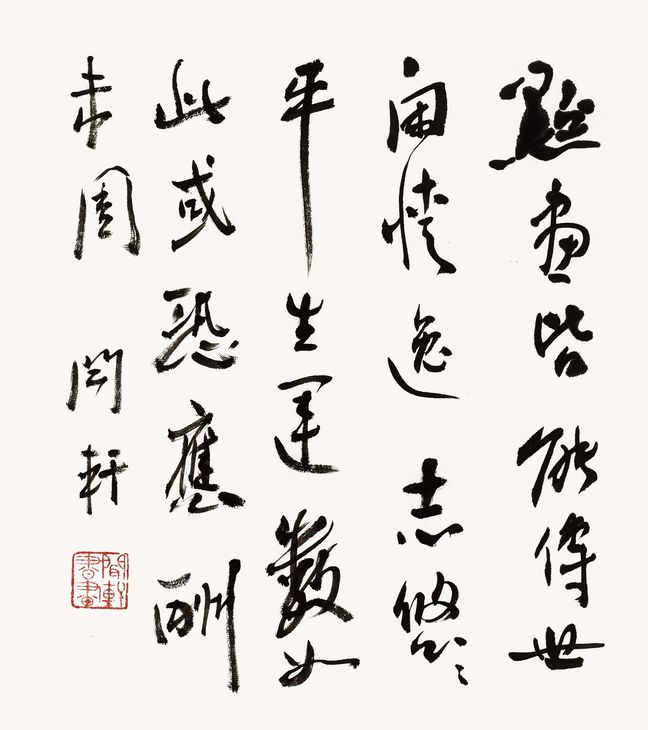 點畫皆能傳世
閑情逸志悠〻
平生運數如
此或恐應酬
未周 軒
軒書畫